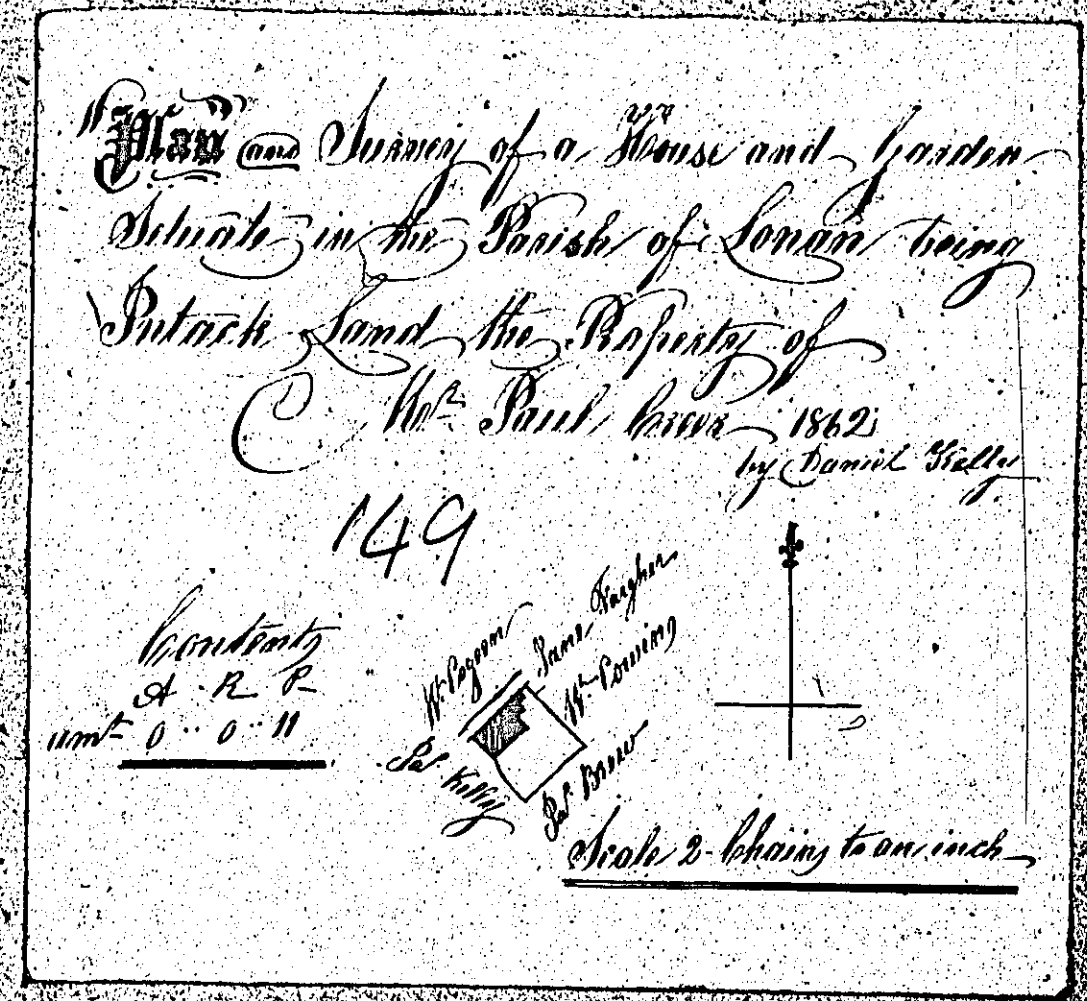 Plan and Survey of a House and Garden
Situate in the Parish of Lonan being
Intack Land the Property of
Mr. Paul 1862
by Daniel Kelly
149
Contents
A . R P
amt 0 .. 0 .. 11
Wm Pogson
Jane Fargher
Wm Cowin
Pat Kelly
Pat Brew
Scale 2 Chains to an inch